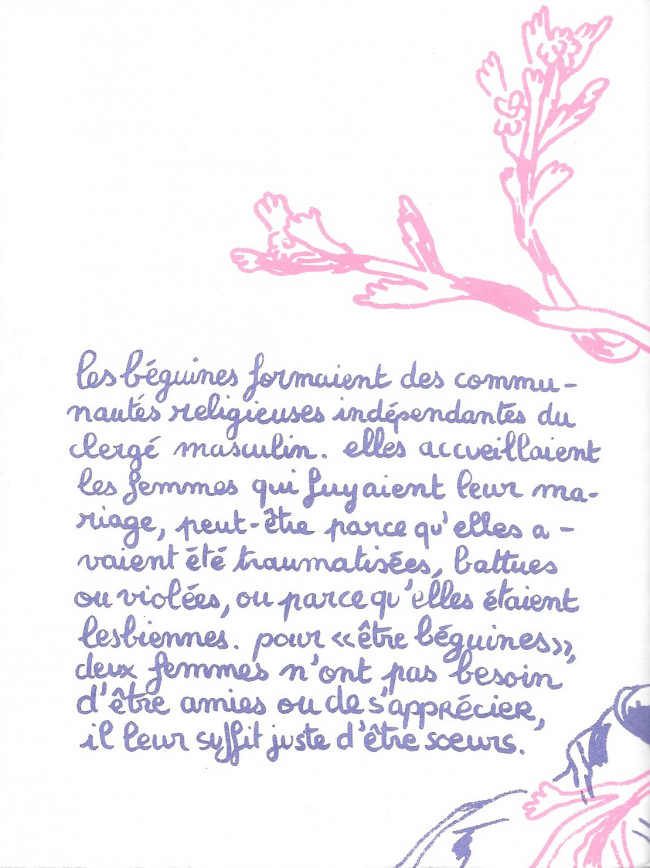 les béguines formaient des commu-
nautés religieuses indépendantes du
clergé masculin. elles accueillaient
les femmes qui fuyaient leur ma-
riage, peut-être parce qu'elles a-
vaient été traumatisées, battues
ou violées, ou parce qu'elles étaient
lesbiennes. pour «être béguines»,
deux femmes n'ont pas besoin
d'être amies ou de s'apprécier,
il leur suffit juste d'être sœurs.